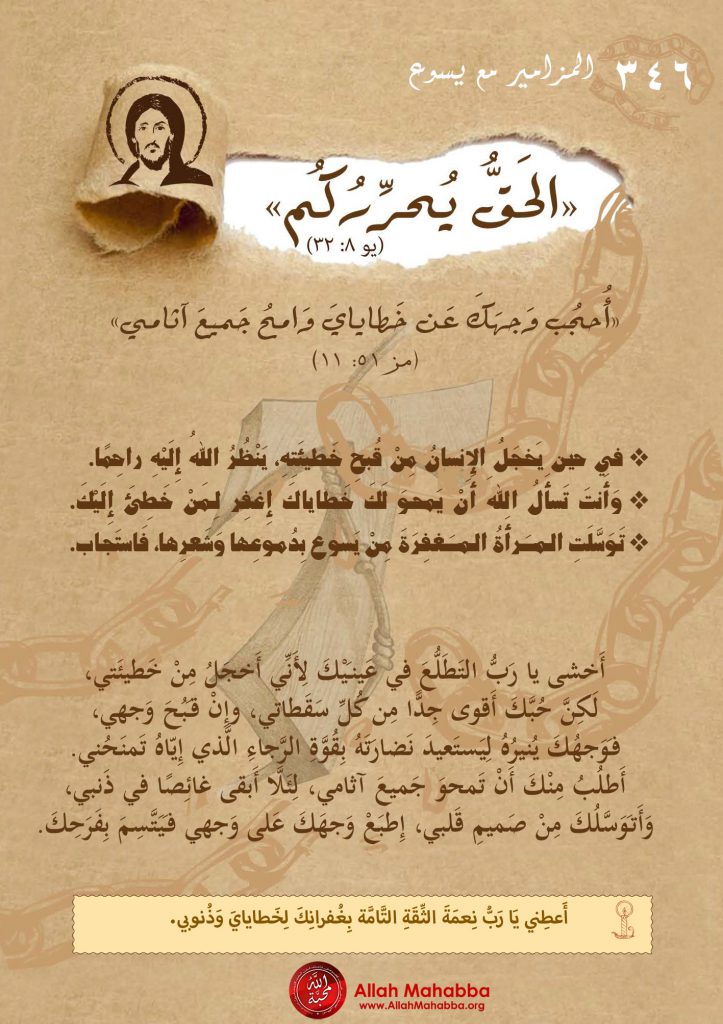 ٣٤٦ المزامير مع يسوع
«الحَقُّ يُحرِّرُكُم»
(يو ٨: ٣٢)
«أُحجُب وَجهَكَ عَن خَطايايَ وَامحُ جَميعَ آثامي»
(مز ٥١: ١١)
❖ في حين يَخجَلُ الإنسانُ مِنْ قُبحِ خَطيئَتِهِ، يَنْظُرُ اللهُ إِلَيْهِ راحِمًا.
❖ وَأَنتَ تَسأَلُ الله أَنْ يَمحوَ لَكَ خَطاياكَ إِغفِر لمَنْ خَطئَ إِلَيْكَ.
❖ تَوَسَّلَتِ المَرأَةُ المَغفِرَةَ مِنْ يَسوع بِدُموعِها وَشَعرِها، فَاستَجاب.
أَخشى يا رَبُّ التَطَلُّعَ في عَينَيْكَ لِأَنِّي أَخجَلُ مِنْ خَطيئَتي،
لَكِنَّ حُبَّكَ أَقوى جِدًّا مِن كُلِّ سَقَطاتي، وإِنْ قَبُحَ وَجهي،
فَوَجهُكَ يُنيرُهُ لِيَستَعيدَ نَضارَتَهُ بِقُوَّةِ الرَّجاءِ الَّذي إِيّاهُ تَمنَحُني.
أَطلُبُ مِنْكَ أَنْ تَمحوَ جَميعَ آثامي، لِئَلَّا أَبقى غائِصًا في ذَنبي،
وَأَتَوَسَّلُكَ مِنْ صَميمِ قَلبي، إِطبَعْ وَجهَكَ عَلى وَجهي فيَتَّسِمَ بِفَرَحِكَ.
أَعطِني يَا رَبُّ نِعمَةَ الثِّقَةِ التَّامَّة بِغُفرانِكَ لِخَطايايَ وَذُنوبي.
الله محبة
Allah Mahabba
www.AllahMahabba.org